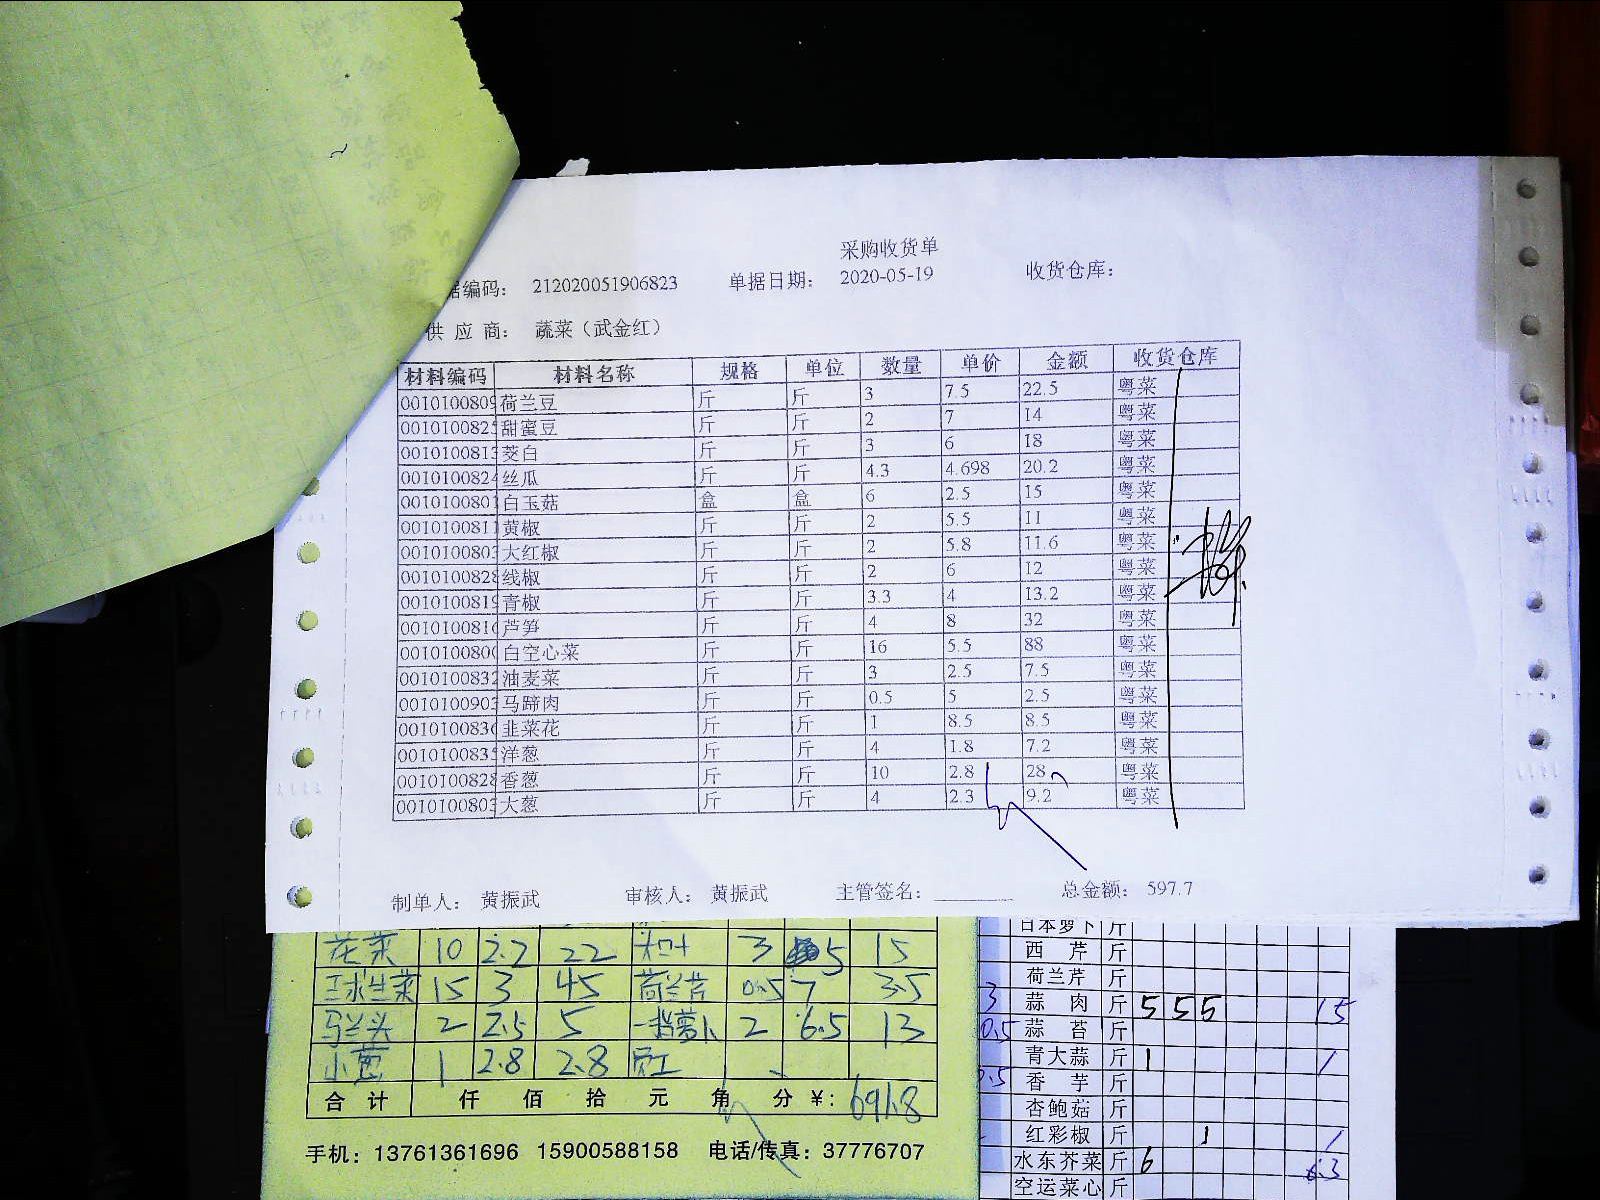 采购收货单
据编码： 212020051906823 单据日期： 2020-05-19 收货仓库：
供 应 商： 蔬菜（武金红）
材料编码 材料名称 规格 单位 数量 单价 金额 收货仓库
0010100809 荷兰豆 斤 斤 3 7.5 22.5 粤菜
001010082 甜蜜豆 斤 斤 2 7 14 粤菜
001010081 茭白 斤 斤 3 6 18 粤菜
0010100824 丝瓜 斤 斤 4.3 4.698 20.2 粤菜
001010080 白玉菇 盒 盒 6 2.5 15 粤菜
001010081 黄椒 斤 斤 2 5.5 11 粤菜
001010080 大红椒 斤 斤 2 5.8 11.6 粤菜
0010100828 线椒 斤 斤 2 6 12 粤菜
0010100819 青椒 斤 斤 3.3 4 13.2 粤菜
001010081 芦笋 斤 斤 4 8 32 粤菜
001010080 白空心菜 斤 斤 16 5.5 88 粤菜
0010100832 油麦菜 斤 斤 3 2.5 7.5 粤菜
001010090 马蹄肉 斤 斤 0.5 5 2.5 粤菜
001010083 韭菜花 斤 斤 1 8.5 8.5 粤菜
001010083 洋葱 斤 斤 4 1.8 7.2 粤菜
0010100828 香葱 斤 斤 10 2.8 28 粤菜
001010080 大葱 斤 斤 4 2.3 9.2 粤菜
制单人： 黄振武 审核人： 黄振武 主管签名： 总金额： 597.7
花菜 10 2.2 22 3 5 15
生菜 15 3 45 荷兰芹 0.5 7 3.5
马兰头 2 2.5 5 萝卜 2 6.5 13
小葱 1 2.8 2.8
合 计 仟 佰 拾 元 角 分 ¥: 691.8
手机：13761361696 15900588158 电话/传真：37776707
日本萝卜 斤
西 芹 斤
荷兰芹 斤
3 蒜 肉 斤 5 5 5 15
0.5 蒜 苔 斤
青大蒜 斤 1 1
香 芋 斤
杏鲍菇 斤
红彩椒 斤 1 1
水东芥菜 斤 6 6.3
空运菜心 斤